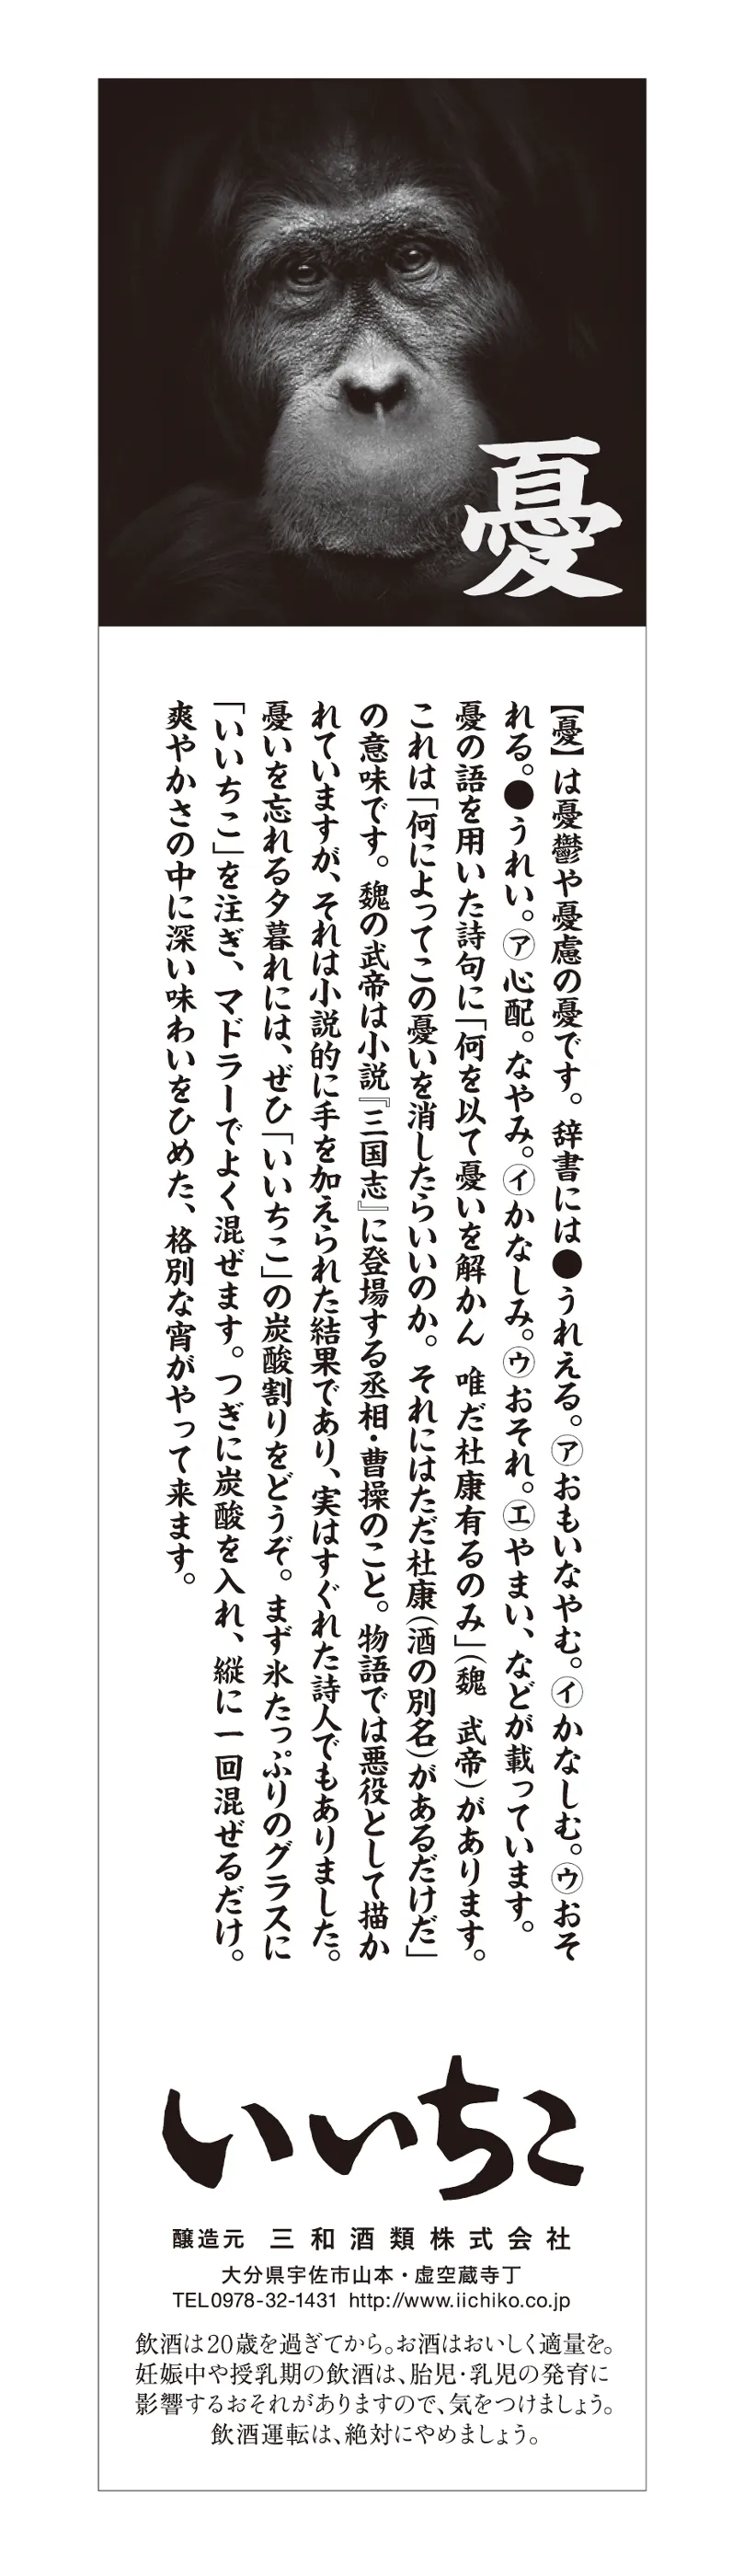 憂
【憂】は憂鬱や憂慮の憂です。辞書には●うれえる。㋐おもいなやむ。㋑かなしむ。㋒おそ
れる。●うれい。㋐心配。なやみ。㋑かなしみ。㋒おそれ。㋓やまい、などが載っています。
憂の語を用いた詩句に「何を以て憂いを解かん 唯だ杜康有るのみ」(魏 武帝)があります。
これは「何によってこの憂いを消したらいいのか。それにはただ杜康(酒の別名)があるだけだ」
の意味です。魏の武帝は小説『三国志』に登場する丞相・曹操のこと。物語では悪役として描か
れていますが、それは小説的に手を加えられた結果であり、実はすぐれた詩人でもありました。
憂いを忘れる夕暮れには、ぜひ「いいちこ」の炭酸割りをどうぞ。まず氷たっぷりのグラスに
「いいちこ」を注ぎ、マドラーでよく混ぜます。つぎに炭酸を入れ、縦に一回混ぜるだけ。
爽やかさの中に深い味わいをひめた、格別な宵がやって来ます。
いいちこ
醸造元 三和酒類株式会社
大分県宇佐市山本・虚空蔵寺丁
TEL0978-32-1431 http://www.iichiko.co.jp
飲酒は20歳を過ぎてから。お酒はおいしく適量を。
妊娠中や授乳期の飲酒は、胎児・乳児の発育に
影響するおそれがありますので、気をつけましょう。
飲酒運転は、絶対にやめましょう。